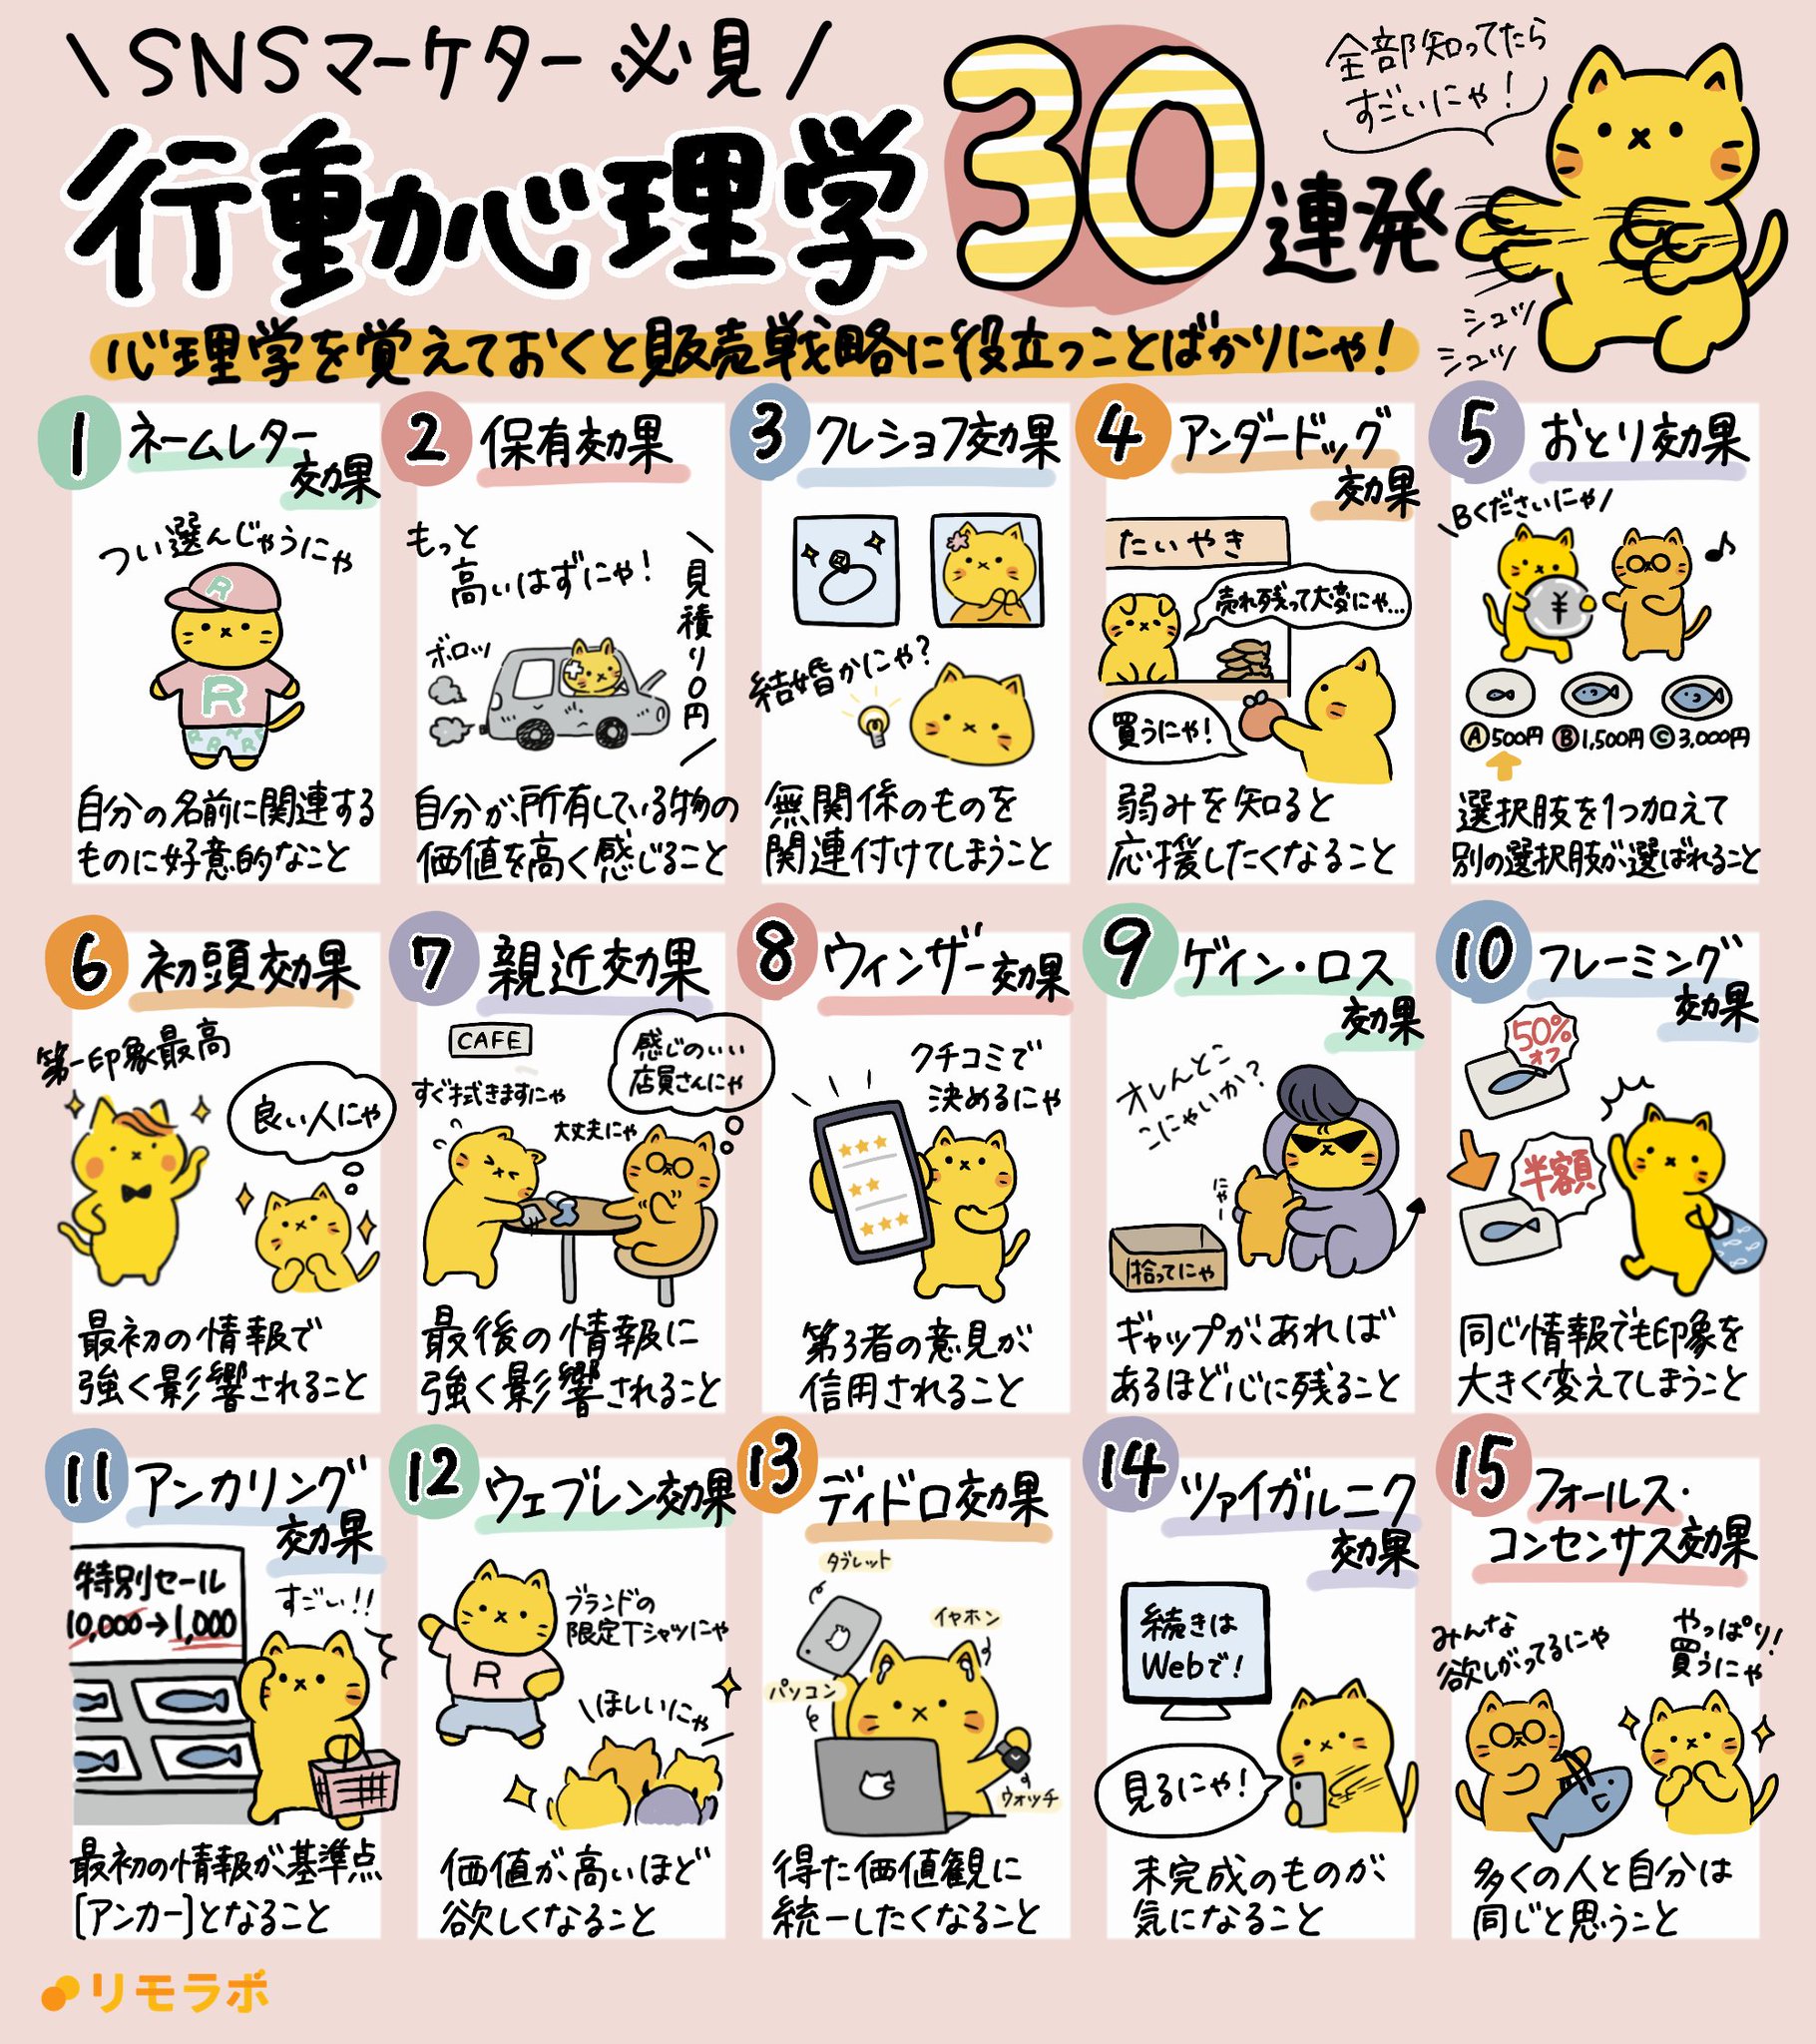 \SNSマーケター 必見/
行動心理学
30
連発
全部知ってたら
すごいにゃ！
シュッ
シュッ
心理学を覚えておくと販売戦略に役立つことばかりにゃ！
1 ネームレター
効果
つい選んじゃうにゃ
R
R
自分の名前に関連する
ものに好意的なこと
2 保有効果
もっと
高いはずにゃ！
\見積り0円/
ボロッ
自分が所有している物の
価値を高く感じること
3 クレショフ効果
結婚かにゃ？
無関係のものを
関連付けてしまうこと
4 アンダードッグ
効果
たいやき
売れ残って大変にゃ…
買うにゃ！
弱みを知ると
応援したくなること
5 おとり効果
\Bくださいにゃ/
¥
A 500円 B 1,500円 C 3,000円
選択肢を1つ加えて
別の選択肢が選ばれること
6 初頭効果
第一印象最高
良い人にゃ
最初の情報で
強く影響されること
7 親近効果
CAFE
感じのいい
店員さんにゃ
すぐ拭きますにゃ
大丈夫にゃ
最後の情報に
強く影響されること
8 ウィンザー効果
クチコミで
決めるにゃ
第3者の意見が
信用されること
9 ゲイン・ロス
効果
オレんとこ
こにゃいか？
にゃー
拾ってにゃ
ギャップがあれば
あるほど心に残ること
10 フレーミング
効果
50%
オフ
半額
同じ情報でも印象を
大きく変えてしまうこと
11 アンカリング
効果
特別セール
10,000→1,000
すごい!!
最初の情報が基準点
[アンカー]となること
12 ウェブレン効果
ブランドの
限定Tシャツにゃ
R
\ほしいにゃ/
価値が高いほど
欲しくなること
13 ディドロ効果
タブレット
イヤホン
パソコン
ウォッチ
得た価値観に
統一したくなること
14 ツァイガルニク
効果
続きは
Webで！
見るにゃ！
未完成のものが
気になること
15 フォールス・
コンセンサス効果
みんな
欲しがってるにゃ
やっぱり！
買うにゃ
多くの人と自分は
同じと思うこと
リモラボ